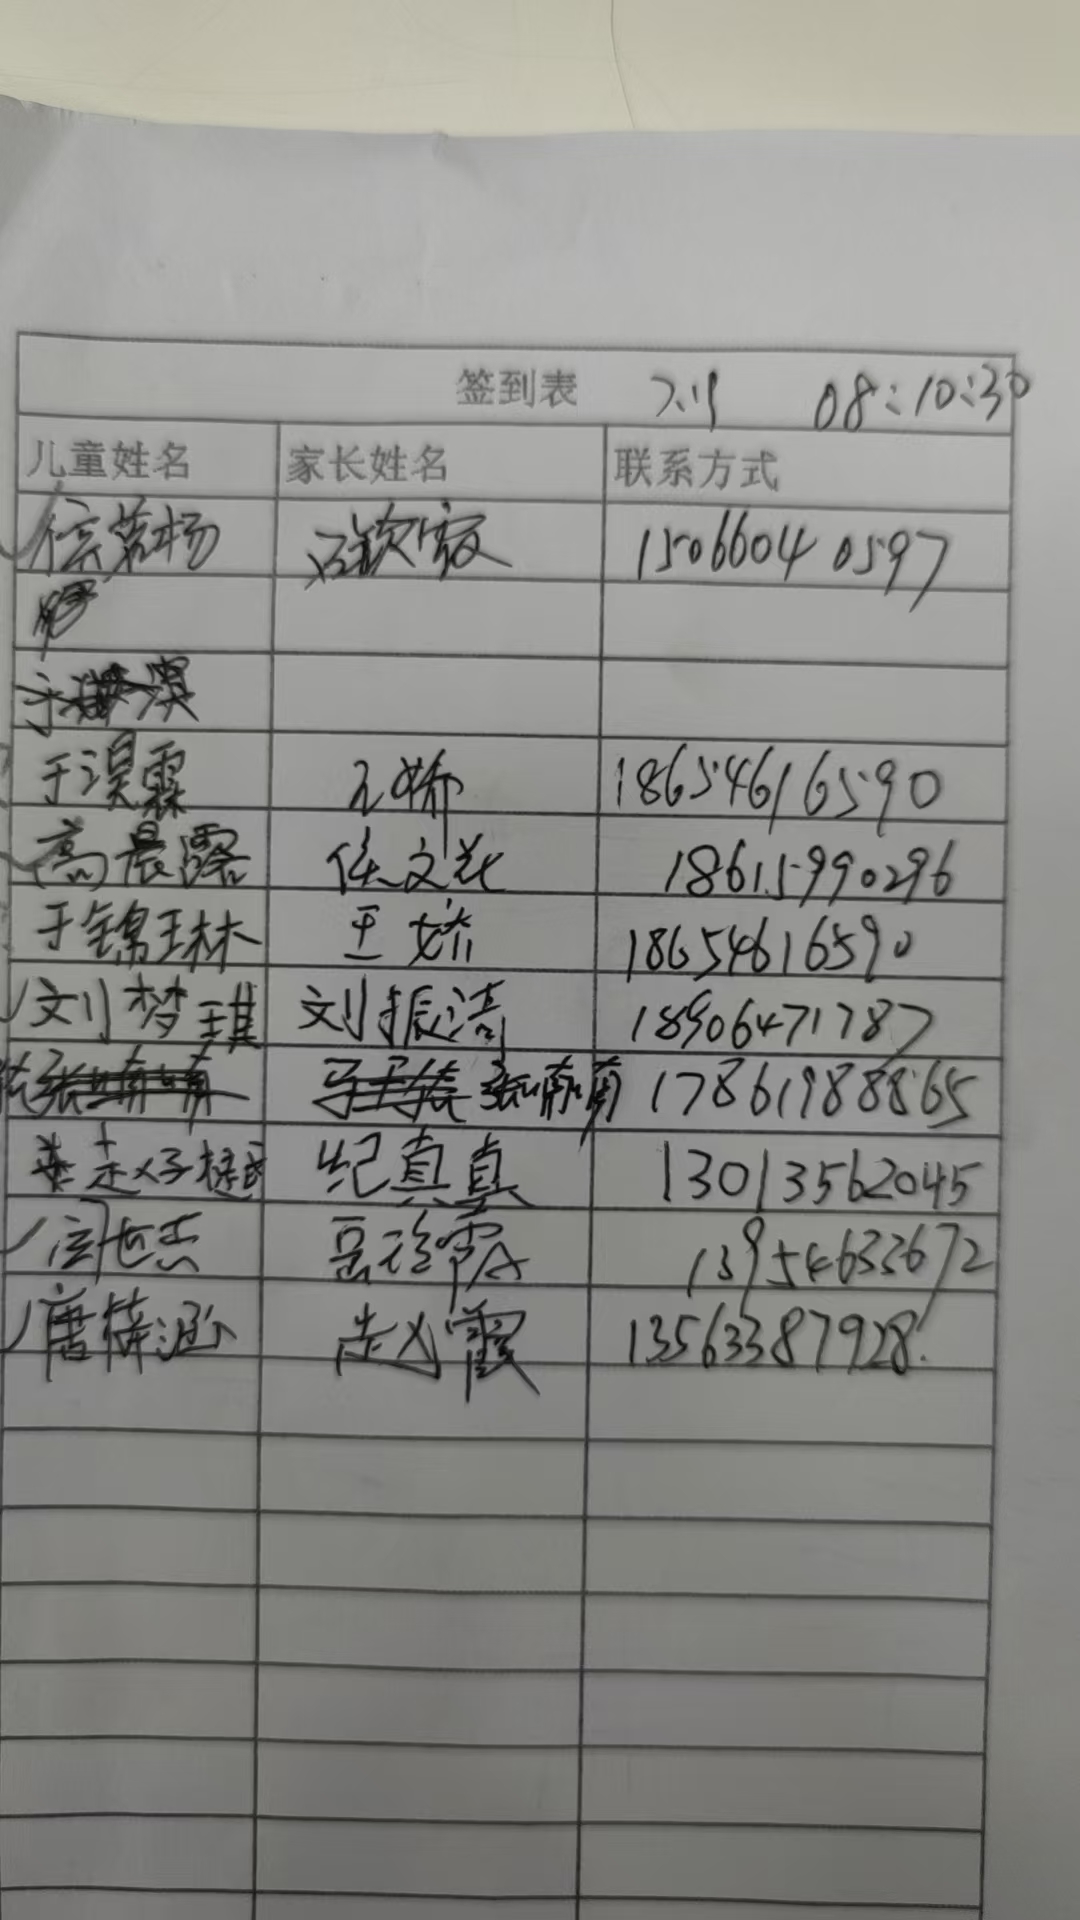 签到表 7.19 08:10:30
儿童姓名 家长姓名 联系方式
15066040597
于淏霖 王娇 18654616590
高晨露 任文花 18615990296
于锦琳 王娇 18654616590
刘梦琪 刘振涛 18906471787
张 17861988865
纪真真 13013562045
岳玲霞 13954633672
唐梓涵 赵霞 13563387928